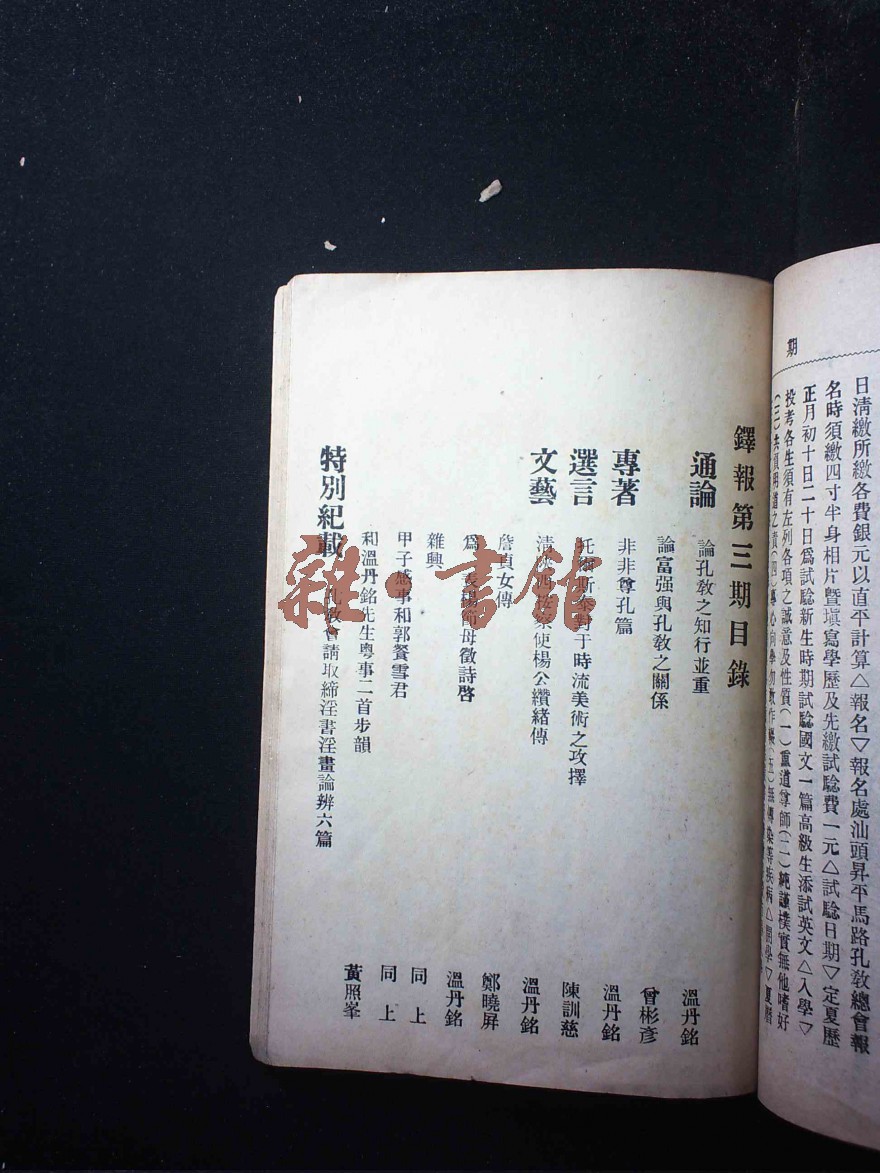 期
日清繳所繳各費銀元以直平計算△報名▽報名處汕頭昇平馬路孔教總會報
名時須繳四寸半身相片曁塡寫學歷及先繳試驗費一元△試驗日期▽定夏歷
正月初十日二十日爲試驗新生時期試驗國文一篇高級生添試英文△入學▽
投考各生須有左列各項之誠意及性質(一)重道尊師(二)純謹樸實無他嗜好
(三)共須明道之責(四)專心向學勿敢作輟(五)無傳染等疾病△開學▽夏曆
鐸報第三期目錄
通論 論孔教之知行並重 溫丹銘
論富强與孔教之關係 曾彬彥
專著 非非尊孔篇 溫丹銘
選言 托爾斯泰對于時流美術之攻擇 陳訓慈
文藝 清 使楊公纘緒傳 溫丹銘
詹貞女傳 鄭曉屏
爲 表揚節母徵詩啓 溫丹銘
雜興 同上
甲子感事和郭餐雪君 同上
和溫丹銘先生粵事二首步韻 黃照峯
特別紀載 孔教會請取締淫書淫畫論辨六篇
雜·書館